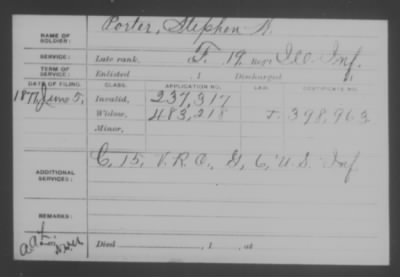 NAME OF SOLDIER: Porter, Stephen N.
SERVICE: Late rank, F. 19, Reg't Ill. Inf.
TERM OF SERVICE: Enlisted , 1 Discharged
DATE OF FILING. CLASS. APPLICATION NO. LAW. CERTIFICATE NO.
1877 June 5, Invalid, 237,317
Widow, 483,218 398,963
Minor,
ADDITIONAL SERVICES: C, 15, V.R.C., G, 6, U.S. Inf
REMARKS:
Died , 1 , at